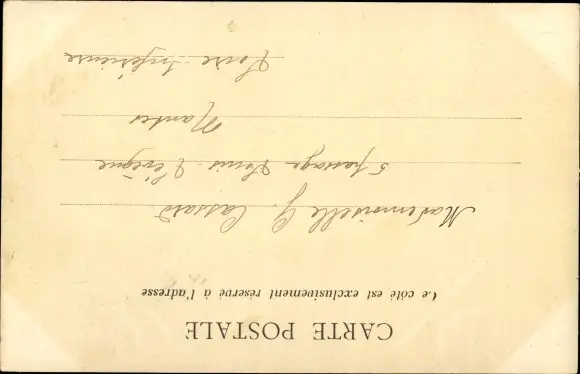 CARTE POSTALE
Ce côté est exclusivement réservé à l'adresse
Mademoiselle G. Cassard
5 passage Louis Levêque
Nantes
Loire Inférieure